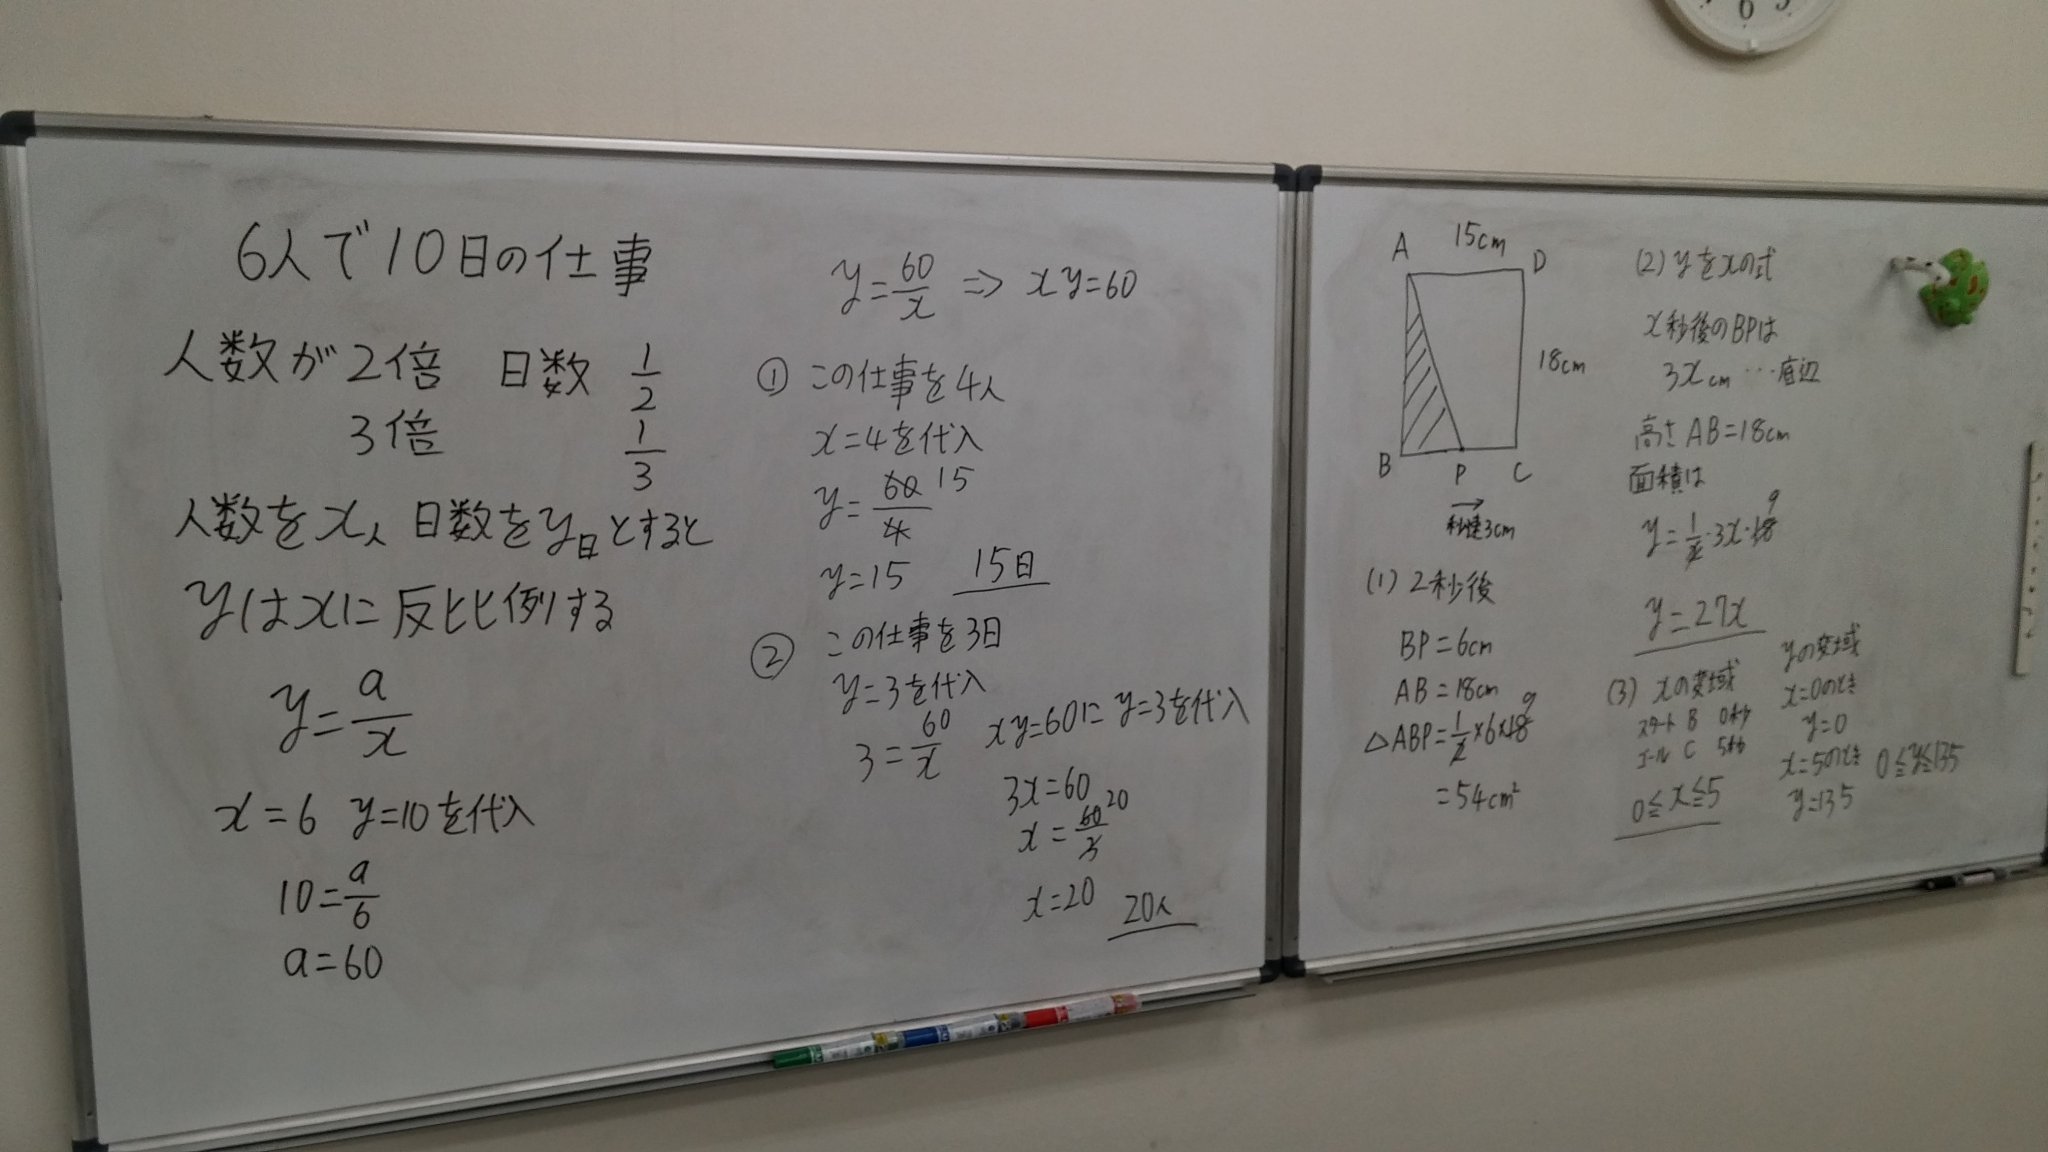 6人で10日の仕事
人数が2倍 日数 1/2
3倍 1/3
人数をx人 日数をy日とすると
yはxに反比例する
y=a/x
x=6 y=10を代入
10=a/6
a=60
y=60/x ⇒ xy=60
① この仕事を4人
x=4を代入
y=60/4 15
y=15 15日
② この仕事を3日
y=3を代入
3=60/x xy=60に y=3を代入
3x=60
x=60/3 20
x=20 20人
A 15cm D
18cm
B P C
→
秒速3cm
(1) 2秒後
BP=6cm
AB=18cm
△ABP=1/2×6×18 9
=54cm²
(2) yをxの式
x秒後のBPは
3xcm…底辺
高さ AB=18cm
面積は
y=1/2・3x・18 9
y=27x
(3) xの変域
スタート B 0秒
ゴール C 5秒
0≦x≦5
yの変域
x=0のとき
y=0
x=5のとき 0≦y≦135
y=135
6